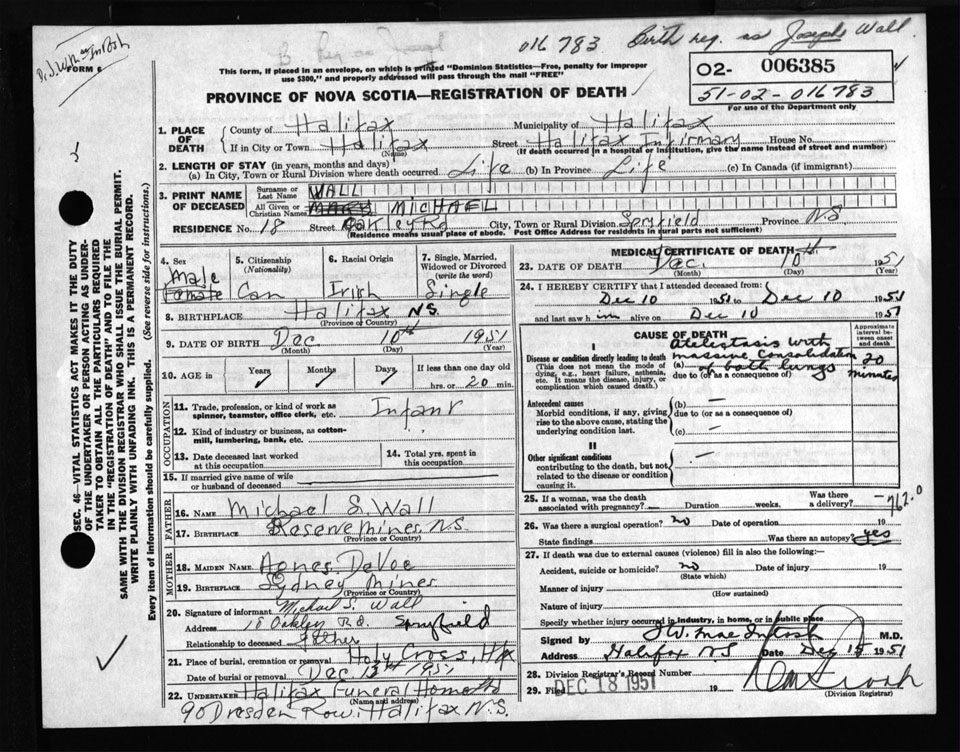 Dr. J. W. MacIntosh
B Reg as Joseph
016783 Birth reg. as Joseph Wall
FORM 6
This form, if placed in an envelope, on which is printed "Dominion Statistics—Free, penalty for improper
use $300," and properly addressed will pass through the mail "FREE"
O2- 006385
51-02-016783
For use of the Department only
PROVINCE OF NOVA SCOTIA—REGISTRATION OF DEATH
1. PLACE OF DEATH { County of Halifax Municipality of Halifax
If in City or Town Halifax (Name) Street Halifax Infirmary House No.
(If death occurred in a hospital or institution, give the name instead of street and number)
2. LENGTH OF STAY (in years, months and days)
(a) In City, Town or Rural Division where death occurred Life (b) In Province Life (c) In Canada (if immigrant)
3. PRINT NAME OF DECEASED
Surname or Last Name WALL
All Given or Christian Names MICHAEL
RESIDENCE No. 18 Street Oakley Rd City, Town or Rural Division Spryfield Province NS
(Residence means usual place of abode. Post Office Address for residents in rural parts not sufficient)
4. Sex Male Female
5. Citizenship (Nationality) Can
6. Racial Origin Irish
7. Single, Married, Widowed or Divorced (write the word) Single
8. BIRTHPLACE Halifax N.S.
(Province or Country)
9. DATE OF BIRTH Dec 10th 1951
(Month) (Day) (Year)
10. AGE in Years Months Days If less than one day old
hrs. or 20 min.
OCCUPATION
11. Trade, profession, or kind of work as
spinner, teamster, office clerk, etc. Infant
12. Kind of industry or business, as cotton-
mill, lumbering, bank, etc.
13. Date deceased last worked
at this occupation
14. Total yrs. spent in
this occupation
15. If married give name of wife
or husband of deceased
FATHER
16. NAME Michael S. Wall
17. BIRTHPLACE Reserve Mines N.S.
(Province or Country)
MOTHER
18. MAIDEN NAME Agnes DeVoe
19. BIRTHPLACE Sydney Mines
(Province or Country)
20. Signature of informant Michael S. Wall
Address 18 Oakley Rd. Spryfield
Relationship to deceased Father
21. Place of burial, cremation or removal Holy Cross, Hfx
Date of burial or removal Dec 13th 1951
22. UNDERTAKER Halifax Funeral Home Ltd
(Name and address)
90 Dresden Row, Halifax N.S.
MEDICAL CERTIFICATE OF DEATH
23. DATE OF DEATH Dec. 10th 1951
(Month) (Day) (Year)
24. I HEREBY CERTIFY that I attended deceased from:
Dec 10 1951 to Dec 10 1951
and last saw him alive on Dec 10 1951
CAUSE OF DEATH
Approximate interval between onset and death
I
Disease or condition directly leading to death
(This does not mean the mode of dying, e.g., heart failure, asthenia, etc. It means the disease, injury, or complication which caused death.)
Atelectasis with
massive consolidation
(a) of both lungs 20 minutes
due to (or as a consequence of)
Antecedent causes
Morbid conditions, if any, giving rise to the above cause, stating the underlying condition last.
(b) —
due to (or as a consequence of)
(c) —
II
Other significant conditions
contributing to the death, but not related to the disease or condition causing it.
—
25. If a woman, was the death
associated with pregnancy? — Duration weeks. Was there a delivery? —
762.0
26. Was there a surgical operation? no Date of operation 19
State findings Was there an autopsy? yes
27. If death was due to external causes (violence) fill in also the following:—
Accident, suicide or homicide? no Date of injury 19
(State which)
Manner of injury
(How sustained)
Nature of injury
Specify whether injury occurred in industry, in home, or in public place
Signed by J W. MacIntosh M.D.
Address Halifax NS Date Dec 13 1951
28. Division Registrar's Record Number
29. Filed DEC 18 1951 19
(Division Registrar)
SEC. 46—VITAL STATISTICS ACT MAKES IT THE DUTY
OF THE UNDERTAKER OR PERSON ACTING AS UNDER-
TAKER TO OBTAIN ALL THE PARTICULARS REQUIRED
IN THE "REGISTRATION OF DEATH" AND TO FILE THE
SAME WITH THE DIVISION REGISTRAR WHO SHALL ISSUE THE BURIAL PERMIT.
WRITE PLAINLY WITH UNFADING INK. THIS IS A PERMANENT RECORD.
Every item of information should be carefully supplied. (See reverse side for instructions.)